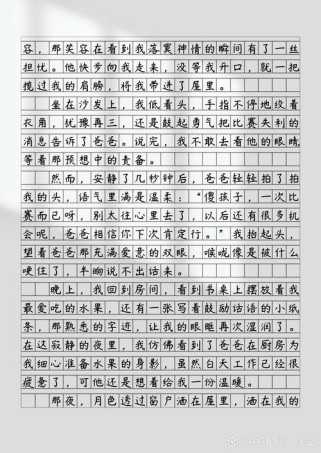 容，那笑容在看到我落寞神情的瞬间有了一丝
担忧。他快步向我走来，没等我开口，就一把
揽过我的肩膀，将我带进了屋里。
坐在沙发上，我低着头，手指不停地绞着
衣角，犹豫再三，还是鼓起勇气把比赛失利的
消息告诉了爸爸。说完，我不敢去看他的眼睛
等着那预想中的责备。
然而，安静了几秒钟后，爸爸轻轻拍了拍
我的头，语气里满是温柔：“傻孩子，一次比
赛而已呀，别太往心里去了，以后还有很多机
会呢，爸爸相信你下次肯定行。”我抬起头，
望着爸爸那充满爱意的双眼，喉咙像是被什么
哽住了，半晌说不出话来。
晚上，我回到房间，看到书桌上摆放着我
最爱吃的水果，还有一张写着鼓励话语的小纸
条，那熟悉的字迹，让我的眼眶再次湿润了。
在这寂静的夜里，我仿佛看到了爸爸在厨房为
我细心准备水果的身影，虽然白天工作已经很
疲惫了，可他还是想着给我一份温暖。
那夜，月色透过窗户洒在屋里，洒在我的